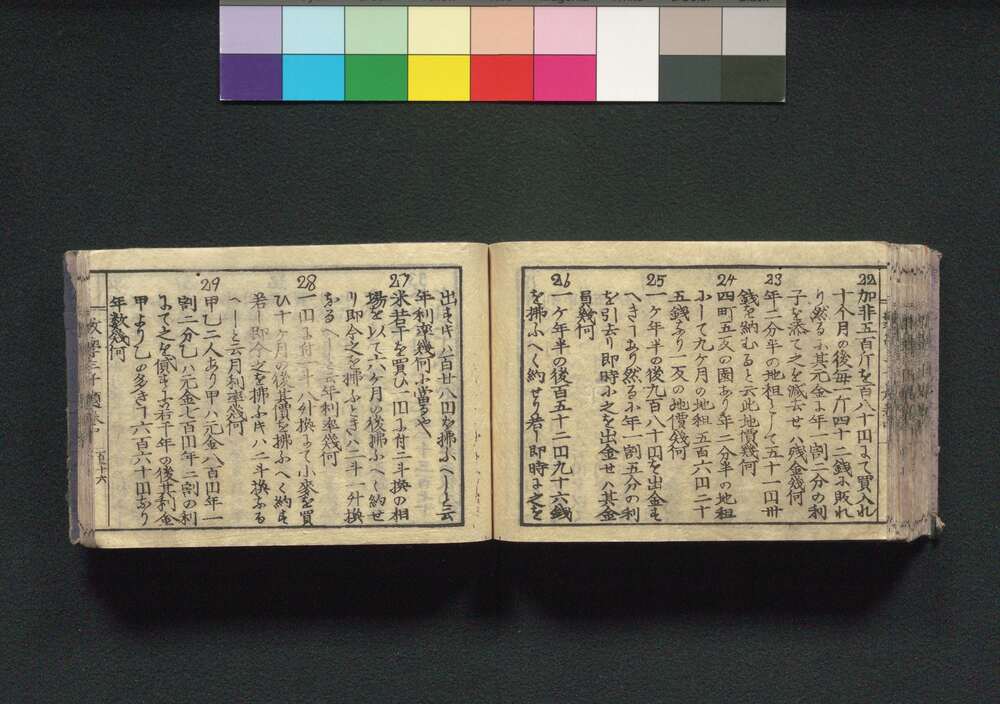 22
加非五百斤を百八十円にて買入れ
十个月の後毎一斤四十二銭小販れ
り然るに其元金に年一割二分の利
子を添て之を減去せハ残金幾何
23
年二分半の地租として五十一円卅
銭を納むると云此地價幾何
24
四町五反の圃あり年二分半の地租
ふして九ヶ月の地租五百六円二十
五銭なり一反の地價幾何
25
一ヶ年半の後九百八十円を出金す
へきヿあり然る小年一割五分の利
を引去り即時小之を出金せハ其金
員幾何
26
一ヶ年半の後百五十二円九十六銭
を拂ふへく約せり若し即時に之を
出すキハ百廿八円を拂ふへしと云
年利率幾何ふ當るや
27
米若干を買ひ一円に付二斗換の相
場を以て六ヶ月の後拂ふへく約せ
り即今之を拂ふときハ二斗一升換
なるへしと云年利率幾何
28
一円に付二斗八升換にて小麥を買
ひ十ヶ月の後其價を拂ふへく約す
若し即今之を拂ふキハ二斗換ふる
へしと云月利率幾何
29
甲乙二人あり甲ハ元金八百円年一
割二分乙ハ元金七百円年二割の利
にて之を償すに若干年の後其利金
甲より乙の多きヿ六百六十円なり
年数幾何
百十六